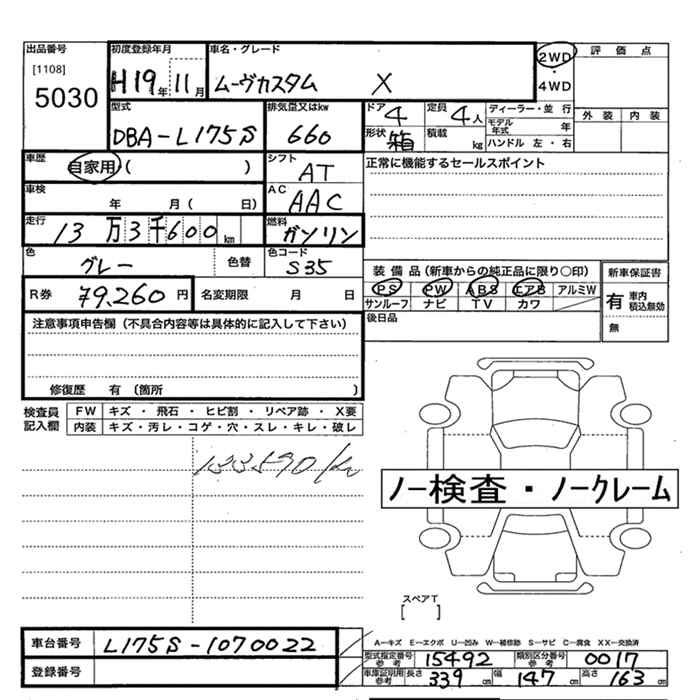 出品番号 初度登録年月 車名・グレード 2WD 評価点
[1108] 5030 H19年 11月 ムーヴカスタム X ・4WD
外装 内装
型式 排気量又はkw ドア 4 定員 4人 ディーラー・並行
DBA-L175S 660 形状 箱 積載 kg モデル年式 年
ハンドル 左・右
車歴 自家用・( ) シフト AT 正常に機能するセールスポイント
車検 年 月( 日) AC AAC
走行 13万3千600km 燃料 ガソリン
色 グレー 色替 色コード S35
装備品(新車からの純正品に限り○印) 新車保証書
R券 79,260円 名変期限 月 日 PS PW ABS エアB アルミW 有 車内積込無効
サンルーフ ナビ TV カワ
無
注意事項申告欄(不具合内容等は具体的に記入して下さい) 後日品
修復歴 有 〔箇所 〕
検査員記入欄 FW キズ・飛石・ヒビ割・リペア跡・X要
内装 キズ・汚レ・コゲ・穴・スレ・キレ・破レ
133590km
ノー検査・ノークレーム
スペアT
[ ]
車台番号 L175S-1070022 A―キズ E―エクボ U―凹み W―補修跡 S―サビ C―腐食 XX―交換済
型式指定番号参考 15492 類別区分番号参考 0017
登録番号 車庫証明用参考 長さ 339cm 幅 147cm 高さ 163cm